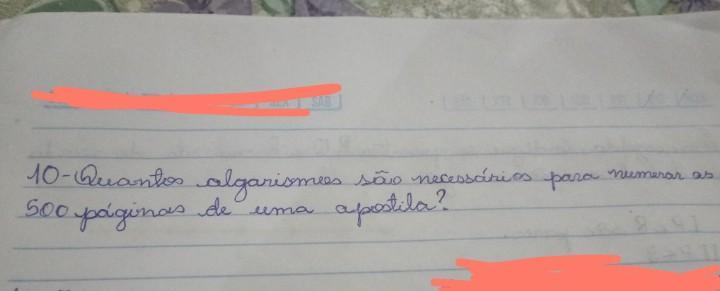 SEX SÁB
10-Quantos algarismos são necessários para numerar as
500 páginas de uma apostila?